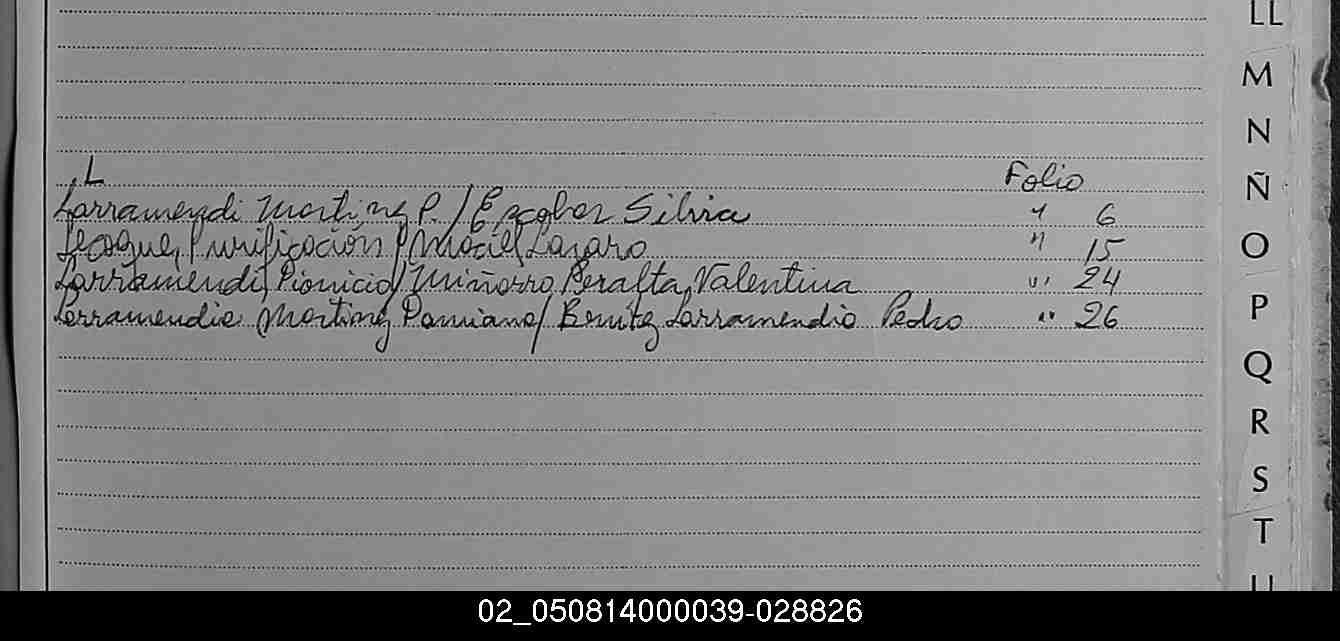 LL
M
N
Ñ
O
P
Q
R
S
T
U
L Folio
Larramendi Martinez P. / Escobar Silvia " 6
Lecogue, Purificación / Maciel Lazaro " 15
Larramendi, Dionicio / Miñarro Peralta, Valentina " 24
Larramendia Martinez Damiana / Benitez Larramendia Pedro " 26
02_050814000039-028826